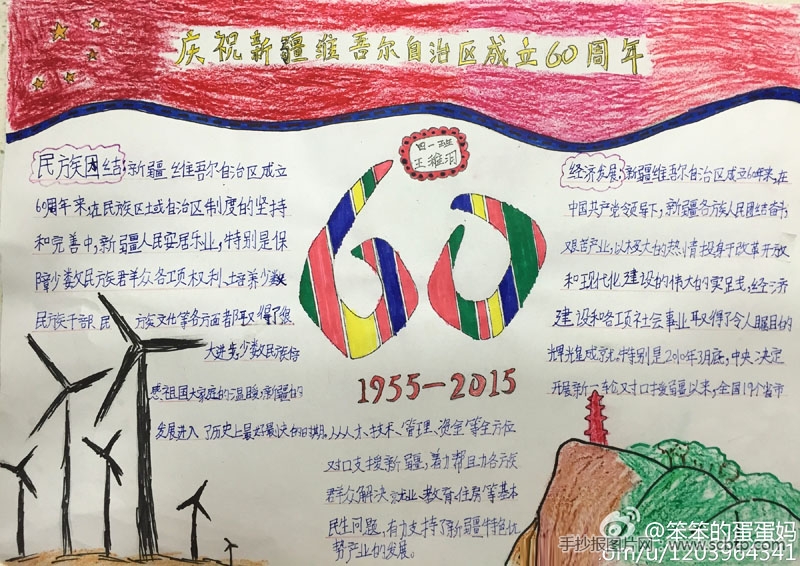 庆祝新疆维吾尔自治区成立60周年
四一班
王稚羽
60
1955-2015
民族团结:新疆维吾尔自治区成立
60周年来,在民族区域自治区制度的坚持
和完善中,新疆人民安居乐业,特别是保
障少数民族群众各项权利、培养少数
民族干部、民 族文化等各方面都取得了很
大进步,少数民族倍
感祖国大家庭的温暖,新疆的
发展进入了历史上最好最快的时期,从人才、技术、管理、资金等全方位
对口支援新疆,着力帮助各族
群众解决就业、教育、住房等基本
民生问题,有力支持了新疆特色优
势产业的发展。
经济发展:新疆维吾尔自治区成立60年来,在
中国共产党领导下,新疆各族人民团结奋斗
艰苦产业,以极大的热情投身于改革开放
和现代化建设的伟大的实践,经济
建设和各项社会事业取得了令人瞩目的
辉煌成就。特别是2010年3月底,中央决定
开展新一轮对口援疆以来,全国19个省市
@笨笨的蛋蛋妈
手抄报图片网 www.scbto.com
om/u/1203964341